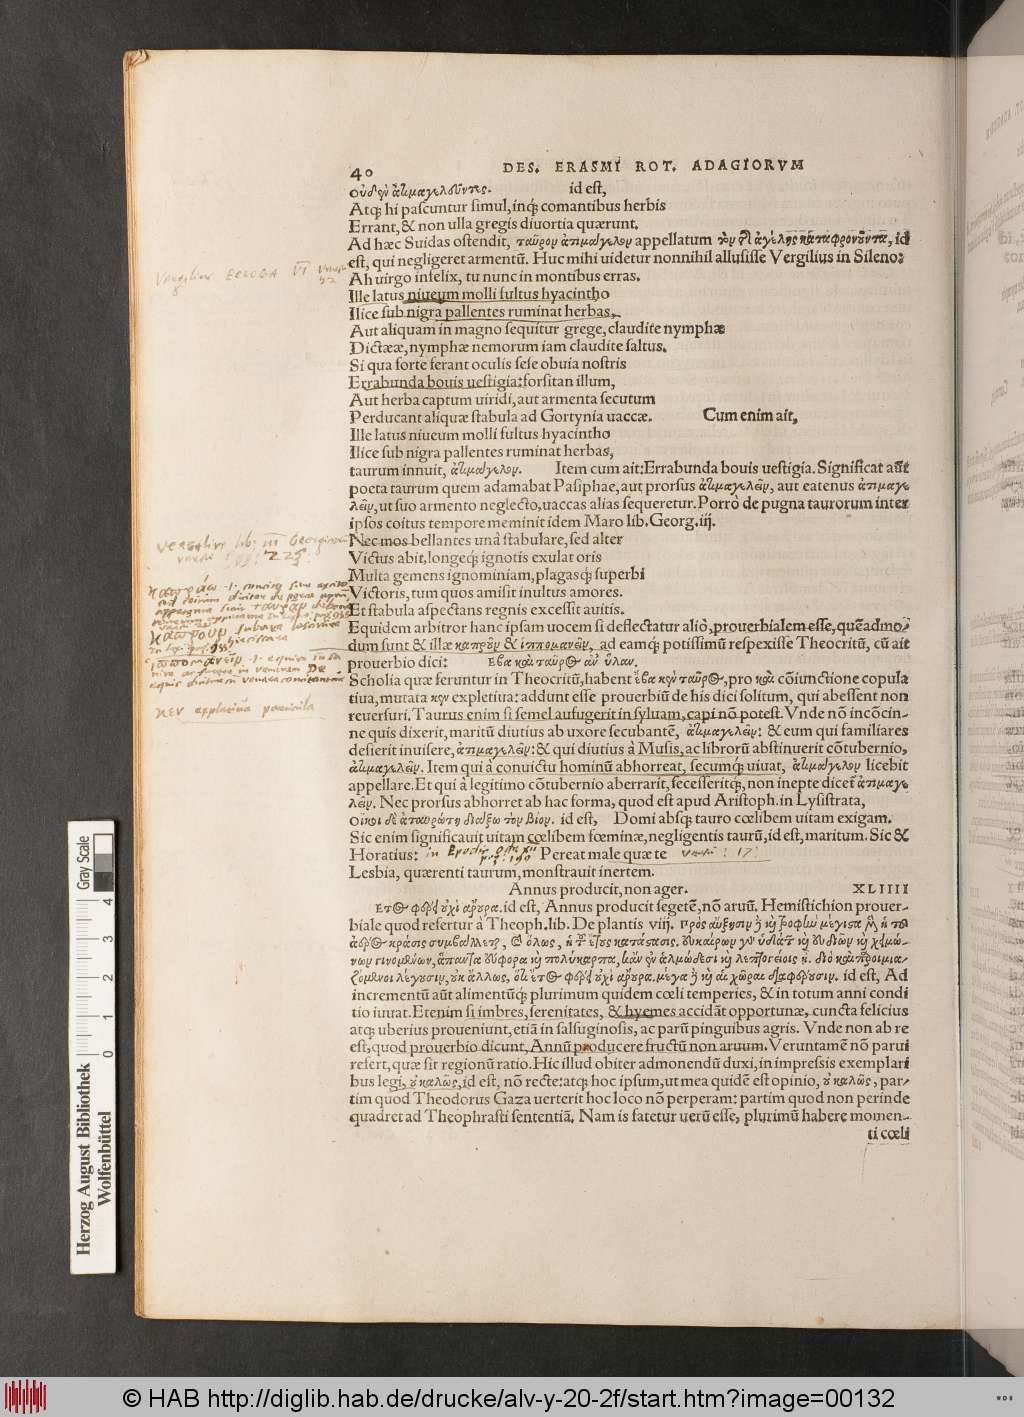 40 DES. ERASMI ROT. ADAGIORVM
οὐδὲν ἀτιμαγελοῦντες. id est,
Atq; hi pascuntur simul, inq; comantibus herbis
Errant, & non ulla gregis diuortia quærunt.
Ad hæc Suidas ostendit, ταῦρον ἀτιμάγελον appellatum τὸν τῆς ἀγέλης καταφρονοῦντα, id
est, qui negligeret armentũ. Huc mihi uidetur nonnihil allusisse Vergilius in Sileno:
Vergilius ECLOGA VI
Ah uirgo infelix, tu nunc in montibus erras.
Ille latus niueum molli fultus hyacintho
Ilice sub nigra pallentes ruminat herbas.
Aut aliquam in magno sequitur grege, claudite nymphæ
Dictææ, nymphæ nemorum iam claudite saltus.
Si qua forte ferant oculis sese obuia nostris
Errabunda bouis uestigia: forsitan illum,
Aut herba captum uiridi, aut armenta secutum
Perducant aliquæ stabula ad Gortynia uaccæ. Cum enim ait,
Ille latus niueum molli fultus hyacintho
Ilice sub nigra pallentes ruminat herbas,
taurum innuit, ἀτιμάγελον. Item cum ait: Errabunda bouis uestigia. Significat aũt
poeta taurum quem adamabat Pasiphae, aut prorsus ἀτιμαγελῶν, aut eatenus ἀτιμαγε
λῶν, ut suo armento neglecto, uaccas alias sequeretur. Porrò de pugna taurorum inter
ipsos coitus tempore meminit idem Maro lib. Georg. iij.
Vergilius lib: III Georgicon
versu 225
Nec mos bellantes unà stabulare, sed alter
Victus abit, longeq; ignotis exulat oris
Multa gemens ignominiam, plagasq; superbi
Victoris, tum quos amisit inultus amores.
Et stabula aspectans regnis excessit auitis.
Equidem arbitror hanc ipsam uocem si deflectatur aliò, prouerbialem esse, quẽadmo-
dum sunt & illæ καπρᾷν & ἱππομανεῖν, ad eamq; potissimũ respexisse Theocritũ, cũ ait
prouerbio dici: Ἔβα καὶ ταῦρος ἀν' ὕλαν.
Scholia quæ feruntur in Theocritũ, habent ἔβα καὶ ταῦρος, pro καὶ cõiunctione copula
tiua, mutata κεν expletiua: addunt esse prouerbiũ de his dici solitum, qui abessent non
reuersuri. Taurus enim si semel aufugerit in syluam, capi nõ potest. Vnde nõ incõcin-
ne quis dixerit, maritũ diutius ab uxore secubantẽ, ἀτιμαγελῶν: & eum qui familiares
desierit inuisere, ἀτιμαγελῶν: & qui diutius à Musis, ac librorũ abstinuerit cõtubernio,
ἀτιμαγελῶν. Item qui à conuictu hominũ abhorreat, secumq; uiuat, ἀτιμάγελον licebit
appellare. Et qui à legitimo cõtubernio aberrarit, secesseritq;, non inepte dicet ἀτιμαγε
λῶν. Nec prorsus abhorret ab hac forma, quod est apud Aristoph. in Lysistrata,
Οἴκοι δὲ ἀταυρώτη διάξω τὸν βίον. id est, Domi absq; tauro cœlibem uitam exigam.
Sic enim significauit uitam cœlibem fœminæ, negligentis taurũ, id est, maritum. Sic &
Horatius: in Epodis Pereat male quæ te versu: 17:
Lesbia, quærenti taurum, monstrauit inertem.
Annus producit, non ager. XLIIII
Ἔτος φέρει οὐχὶ ἄρουρα. id est, Annus producit segetẽ, nõ aruũ. Hemistichion prouer-
biale quod refertur à Theoph. lib. De plantis viij.
id est, Ad
incrementũ aũt alimentũq; plurimum quidem cœli temperies, & in totum anni condi
tio iuuat. Etenim si imbres, serenitates, & hyemes accidãt opportunæ, cuncta felicius
atq; uberius proueniunt, etiã in salsuginosis, ac parũ pinguibus agris. Vnde non ab re
est, quod prouerbio dicunt, Annũ producere fructũ non aruum. Veruntamẽ nõ parui
refert, quæ sit regionũ ratio. Hic illud obiter admonendũ duxi, in impressis exemplari
bus legi, οὐ καλῶς, id est, nõ recte: atq; hoc ipsum, ut mea quidẽ est opinio, οὐ καλῶς, par-
tim quod Theodorus Gaza uerterit hoc loco nõ perperam: partim quod non perinde
quadret ad Theophrasti sententiã. Nam is fatetur uerũ esse, plurimũ habere momen-
ti cœli
Gray Scale
0 1 2 3 4
Herzog August Bibliothek
Wolfenbüttel
© HAB http://diglib.hab.de/drucke/alv-y-20-2f/start.htm?image=00132